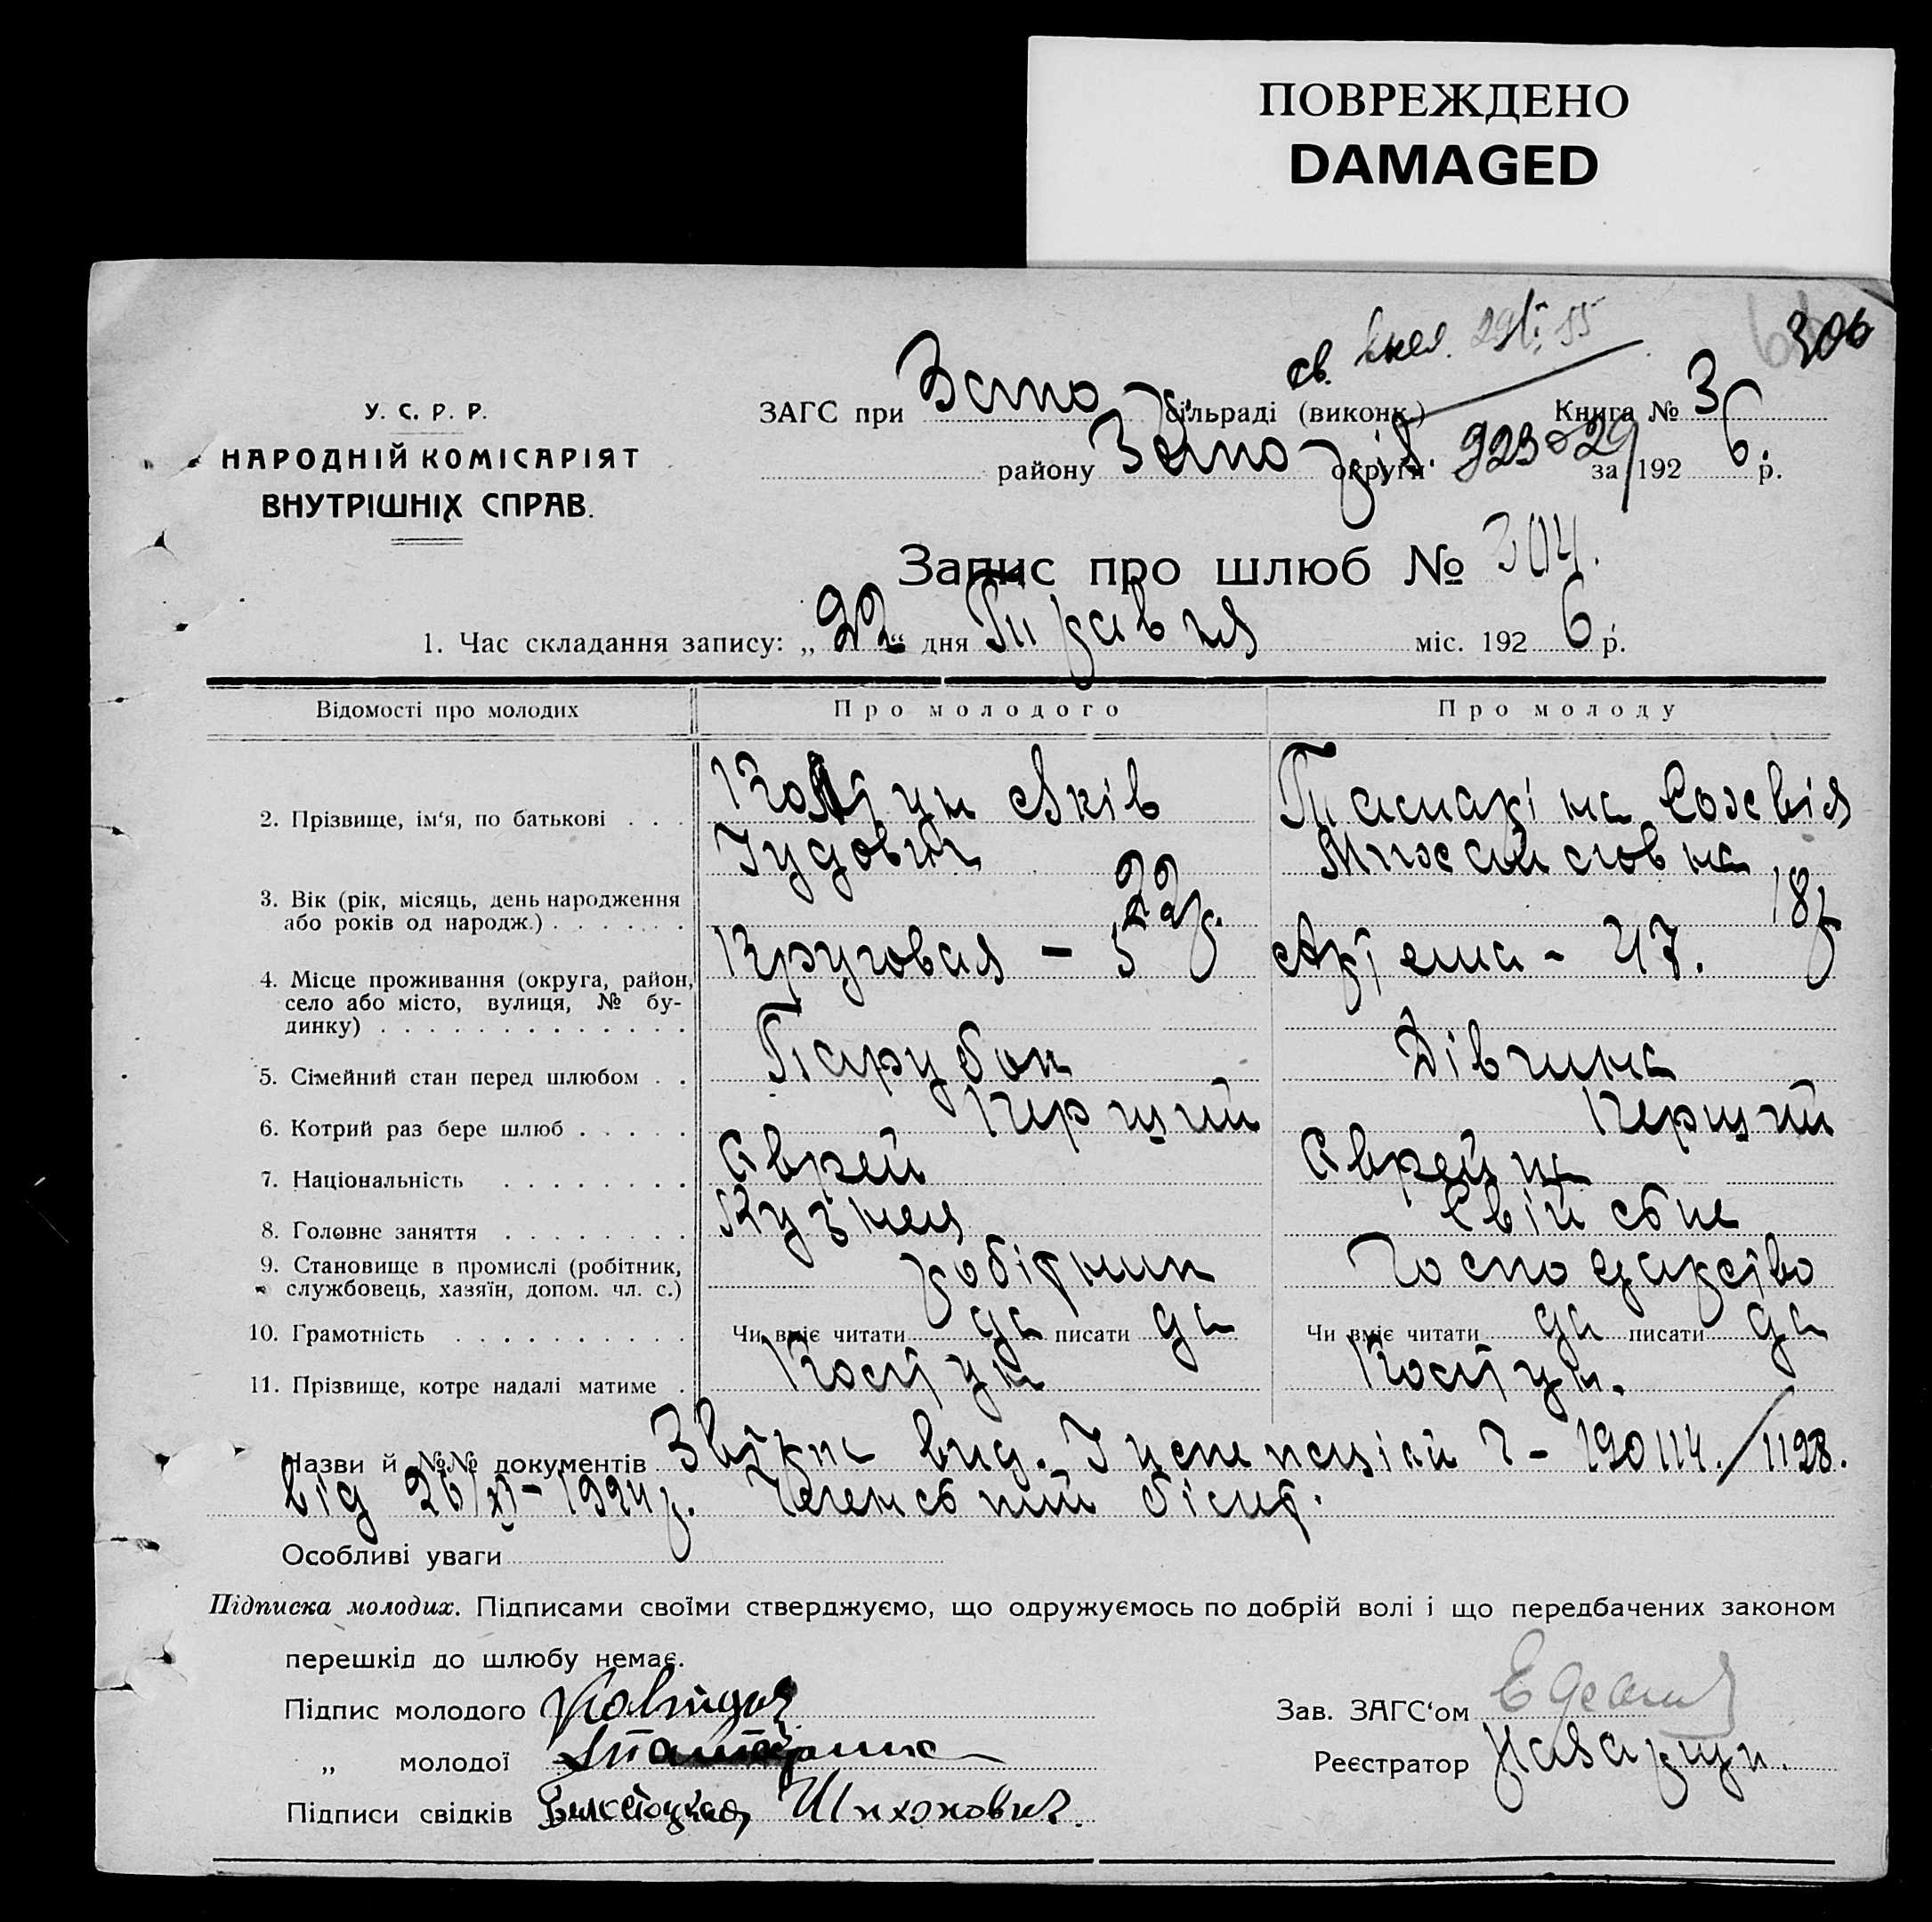 ПОВРЕЖДЕНО
DAMAGED
306
св.
У. С. Р. Р.
НАРОДНІЙ КОМІСАРІЯТ
ВНУТРІШНІХ СПРАВ.
ЗАГС при сільраді (виконк.) Книга № 3
району округи за 192 6 р.
Запис про шлюб № 304.
1. Час складання запису: „ 22 “ дня Травня міс. 192 6 р.
Відомості про молодих Про молодого Про молоду
2. Прізвище, ім‘я, по батькові . . . Яків
Іудович Михайловна
3. Вік (рік, місяць, день народження 22р. 18р
або років од народж.) . . . . . .
4. Місце проживання (округа, район, Круговая – 5 Артема – 47.
село або місто, вулиця, № бу-
динку) . . . . . . . . . . . . .
5. Сімейний стан перед шлюбом . . Парубок Дівчина
6. Котрий раз бере шлюб . . . . . Перший Перший
7. Національність . . . . . . . . Єврей Єврейка
8. Головне заняття . . . . . . . . Кузнец Свійське
9. Становище в промислі (робітник, робітник Господарство
службовець, хазяїн, допом. чл. с.)
10. Грамотність . . . . . . . . . . Чи вміє читати да писати да Чи вміє читати да писати да
11. Прізвище, котре надалі матиме . Костун Костун.
Назви й №№ документів вид. 190114./1128.
від 26/XI – 1924р.
Особливі уваги
Підписка молодих. Підписами своїми стверджуємо, що одружуємось по добрій волі і що передбачених законом
перешкід до шлюбу немає.
Підпис молодого Зав. ЗАГС‘ом
„ молодої Реєстратор
Підписи свідків